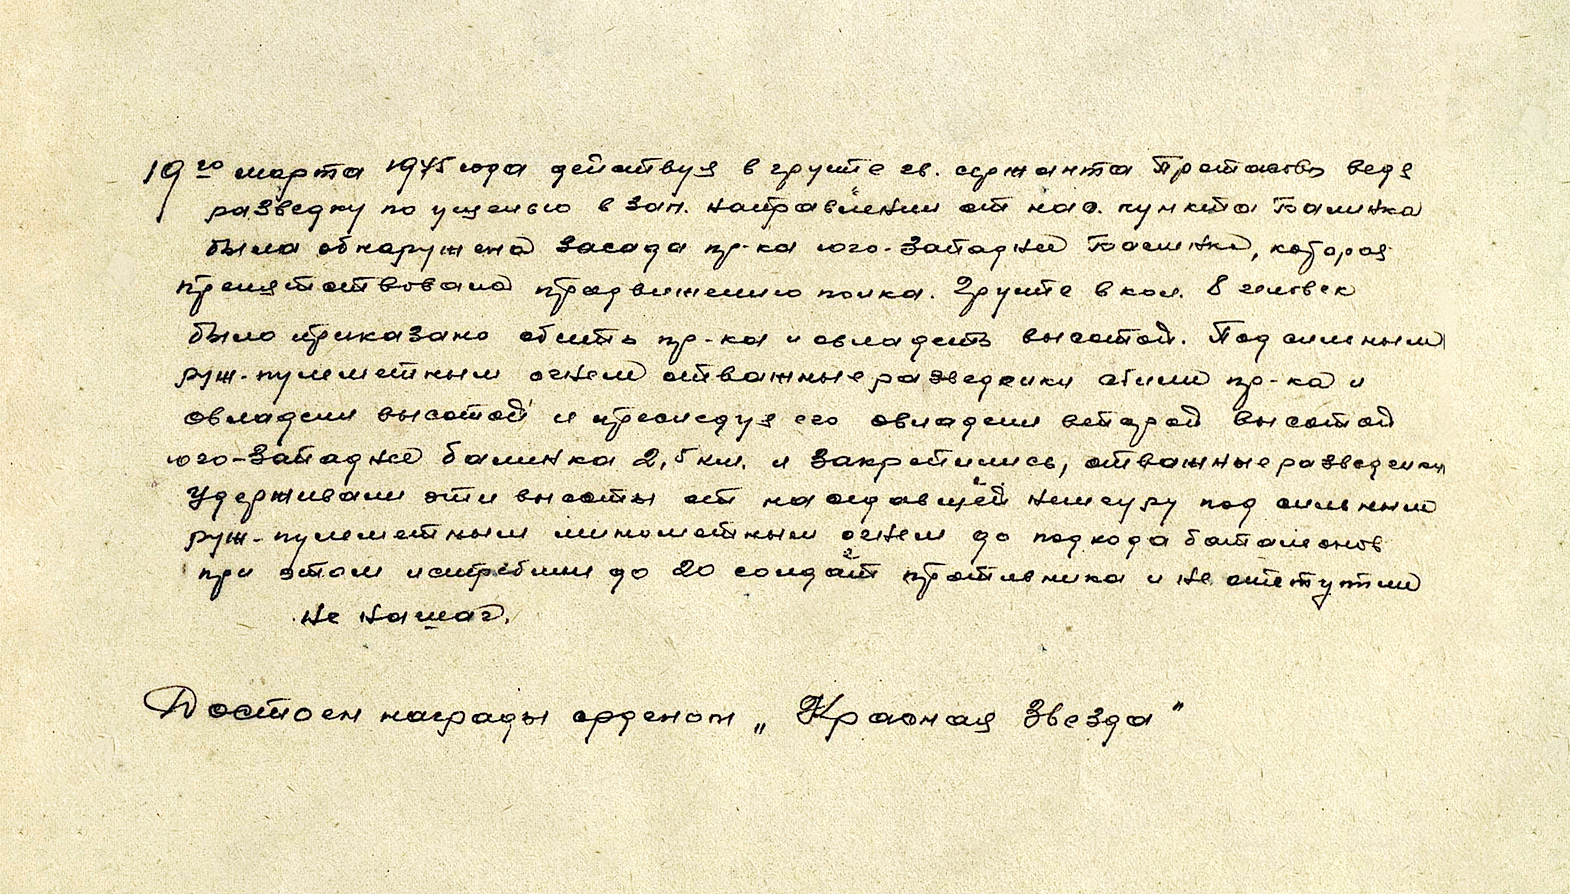 19го марта 1945 года действуя в группе гв. сержанта Протасова ведя
разведку по ущелью в зап. направлении от нас. пункта Балинка
была обнаружена засада пр-ка юго-западнее Балинка, которая
препятствовала продвижению полка. Группе в кол. 8 человек
было приказано сбить пр-ка и овладеть высотой. Под сильным
руж.-пулеметным огнем отважные разведчики сбили пр-ка и
овладели высотой и преследуя его овладели второй высотой
юго-западнее балинка 2,5 км. и закрепились, отважные разведчики
удерживали эти высоты от наседавшей под сильным
руж.-пулеметным минометным огнем до подхода баталионов
при этом истребили до 20 солдат противника и не отступили
не на шаг.
Достоен награды орденом „Красная Звезда"